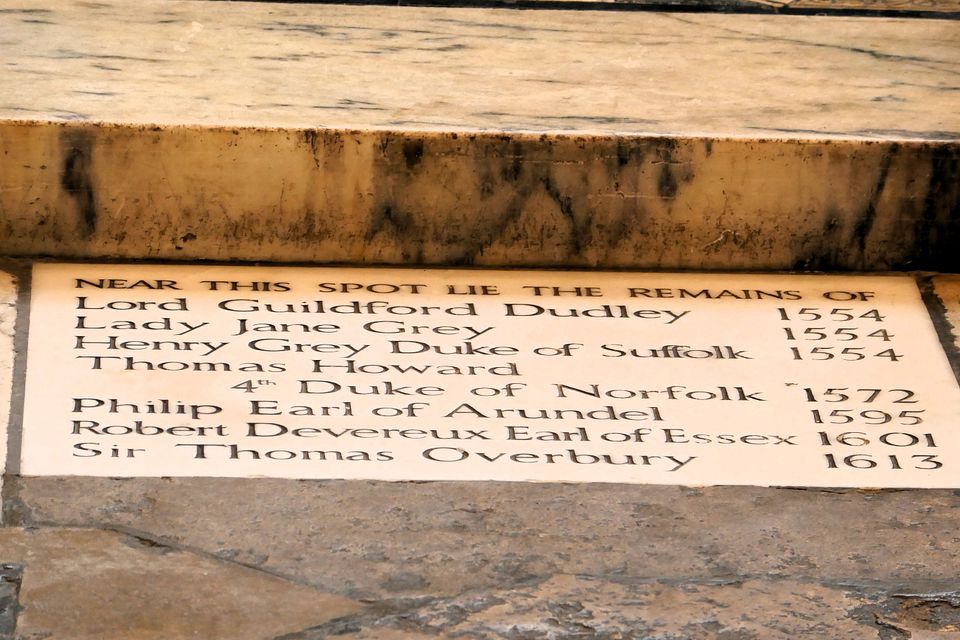 NEAR THIS SPOT LIE THE REMAINS OF
Lord Guildford Dudley 1554
Lady Jane Grey 1554
Henry Grey Duke of Suffolk 1554
Thomas Howard
4th Duke of Norfolk 1572
Philip Earl of Arundel 1595
Robert Devereux Earl of Essex 1601
Sir Thomas Overbury 1613